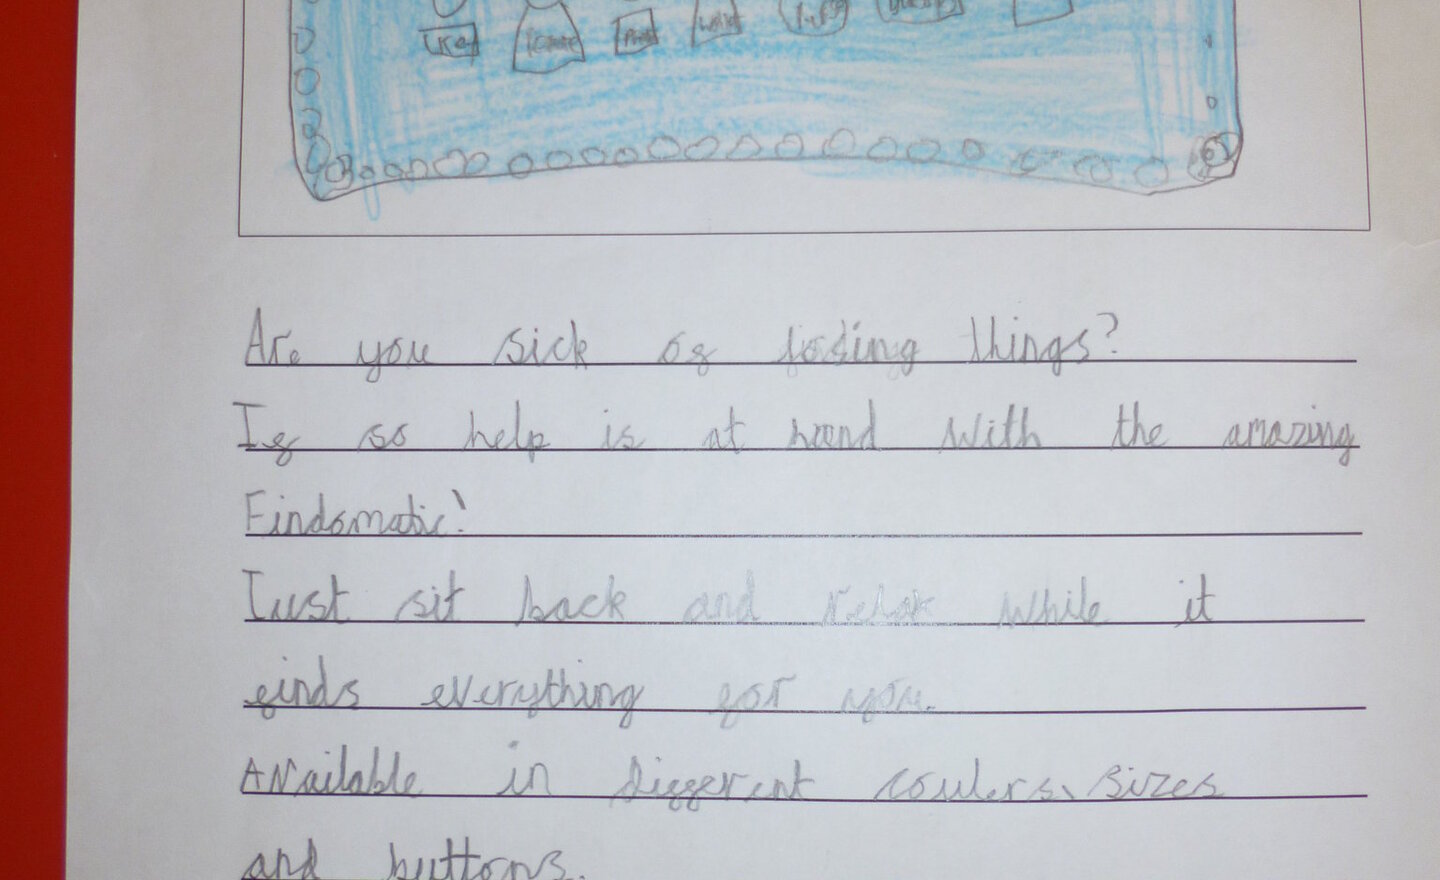 Are you sick of losing things?
If so help is at hand with the amazing
Findomatic!
Just sit back and relax while it
finds everything for you.
Available in different coulers, sizes
and buttons.